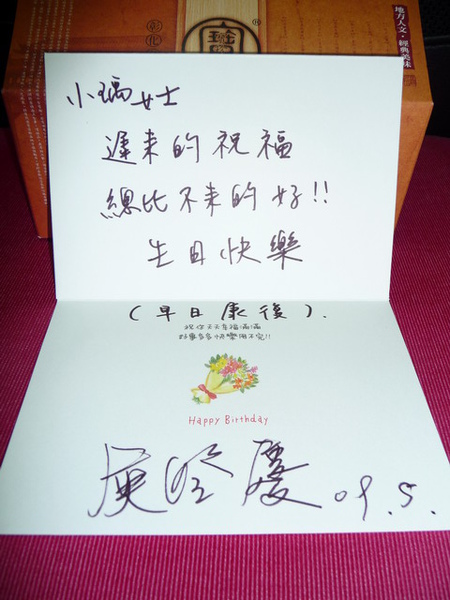 彰化
®
地方人文·經典美味
小瑀女士
遲来的祝福
總比不来的好!!
生日快樂
(早日康復).
祝你天天幸福滿滿
好事多多快樂用不完!!
Happy Birthday
09.5.